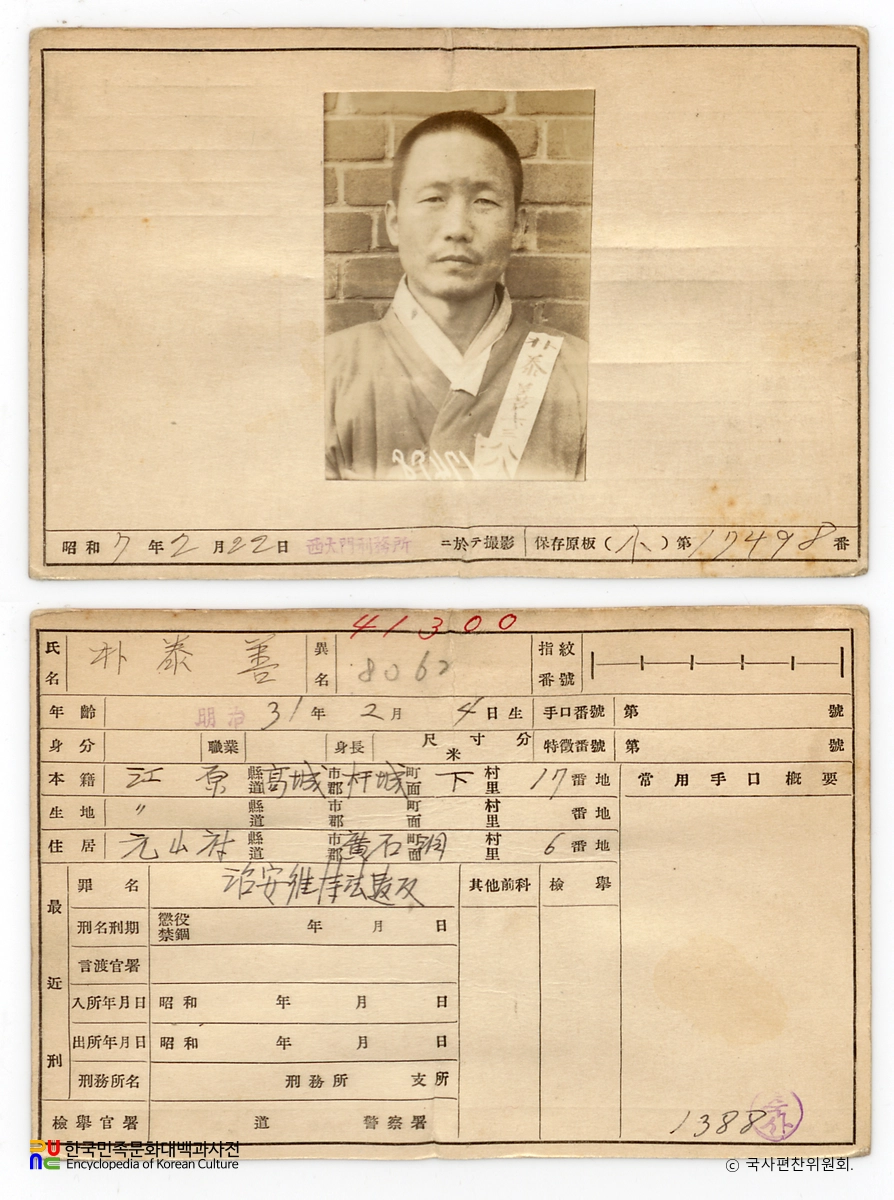 朴泰善
17498
昭和 7 年 2 月 22 日 西大門刑務所 ニ於テ撮影 保存原板(小)第 17498 番
41300
氏名 朴泰善 異名 8062 指紋番號
年齡 明治 31 年 2 月 4 日生 手口番號 第 號
身分 職業 身長 尺 寸 分 米 特徵番號 第 號
本籍 江原 縣道 高城 市郡 杆城 町面 下 村里 17 番地 常用手口概要
生地 〃 縣道 市郡 町面 村里 番地
住居 元山府 縣道 市郡 廣石洞 町面 村里 6 番地
最近刑
罪名 治安維持法違反 其他前科 檢擧
刑名刑期 懲役 禁錮 年 月 日
言渡官署
入所年月日 昭和 年 月 日
出所年月日 昭和 年 月 日
刑務所名 刑務所 支所
檢擧官署 道 警察署
1388
한국민족문화대백과사전
Encyclopedia of Korean Culture
© 국사편찬위원회.